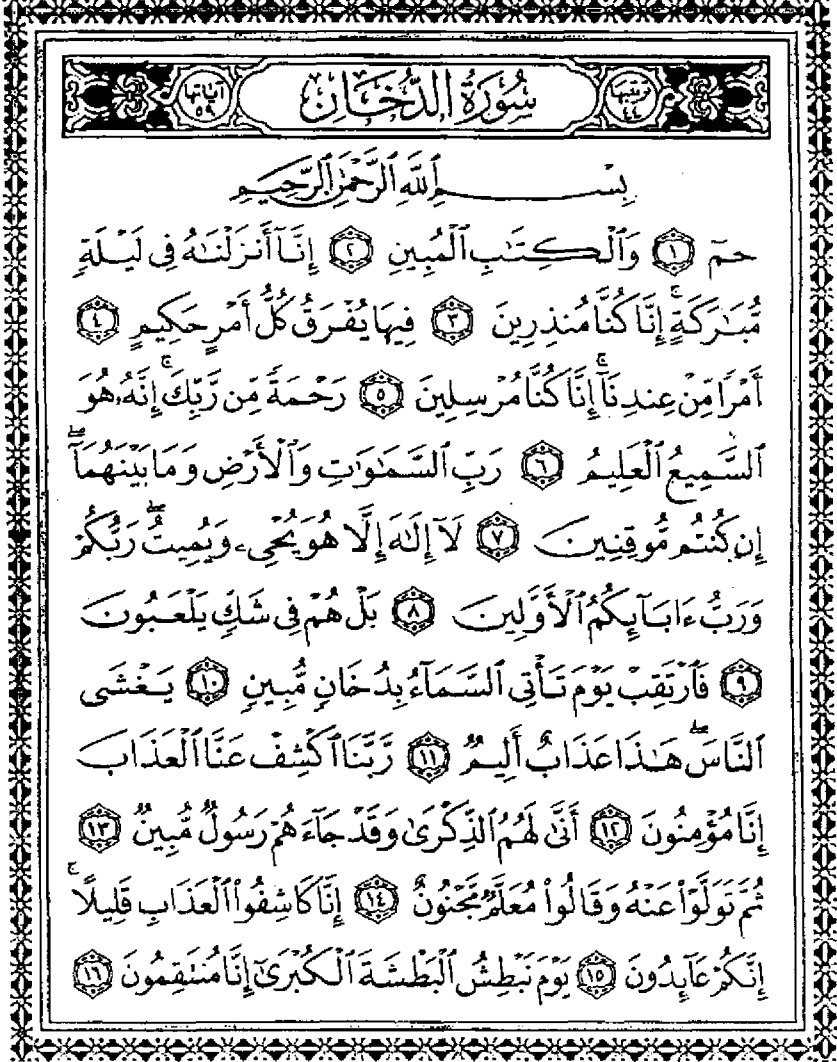 ترتيبها ٤٤ سُورَةُ الدُّخَانِ آياتها ٥٩
بِسْمِ ٱللَّهِ ٱلرَّحْمَٰنِ ٱلرَّحِيمِ
حمٓ ١ وَٱلْكِتَٰبِ ٱلْمُبِينِ ٢ إِنَّآ أَنزَلْنَٰهُ فِى لَيْلَةٍ
مُّبَٰرَكَةٍ ۚ إِنَّا كُنَّا مُنذِرِينَ ٣ فِيهَا يُفْرَقُ كُلُّ أَمْرٍ حَكِيمٍ ٤
أَمْرًا مِّنْ عِندِنَآ ۚ إِنَّا كُنَّا مُرْسِلِينَ ٥ رَحْمَةً مِّن رَّبِّكَ ۚ إِنَّهُۥ هُوَ
ٱلسَّمِيعُ ٱلْعَلِيمُ ٦ رَبِّ ٱلسَّمَٰوَٰتِ وَٱلْأَرْضِ وَمَا بَيْنَهُمَآ ۖ
إِن كُنتُم مُّوقِنِينَ ٧ لَآ إِلَٰهَ إِلَّا هُوَ يُحْىِۦ وَيُمِيتُ ۖ رَبُّكُمْ
وَرَبُّ ءَابَآئِكُمُ ٱلْأَوَّلِينَ ٨ بَلْ هُمْ فِى شَكٍّ يَلْعَبُونَ
٩ فَٱرْتَقِبْ يَوْمَ تَأْتِى ٱلسَّمَآءُ بِدُخَانٍ مُّبِينٍ ١٠ يَغْشَى
ٱلنَّاسَ ۖ هَٰذَا عَذَابٌ أَلِيمٌ ١١ رَّبَّنَا ٱكْشِفْ عَنَّا ٱلْعَذَابَ
إِنَّا مُؤْمِنُونَ ١٢ أَنَّىٰ لَهُمُ ٱلذِّكْرَىٰ وَقَدْ جَآءَهُمْ رَسُولٌ مُّبِينٌ ١٣
ثُمَّ تَوَلَّوْا۟ عَنْهُ وَقَالُوا۟ مُعَلَّمٌ مَّجْنُونٌ ١٤ إِنَّا كَاشِفُوا۟ ٱلْعَذَابِ قَلِيلًا ۚ
إِنَّكُمْ عَآئِدُونَ ١٥ يَوْمَ نَبْطِشُ ٱلْبَطْشَةَ ٱلْكُبْرَىٰٓ إِنَّا مُنتَقِمُونَ ١٦